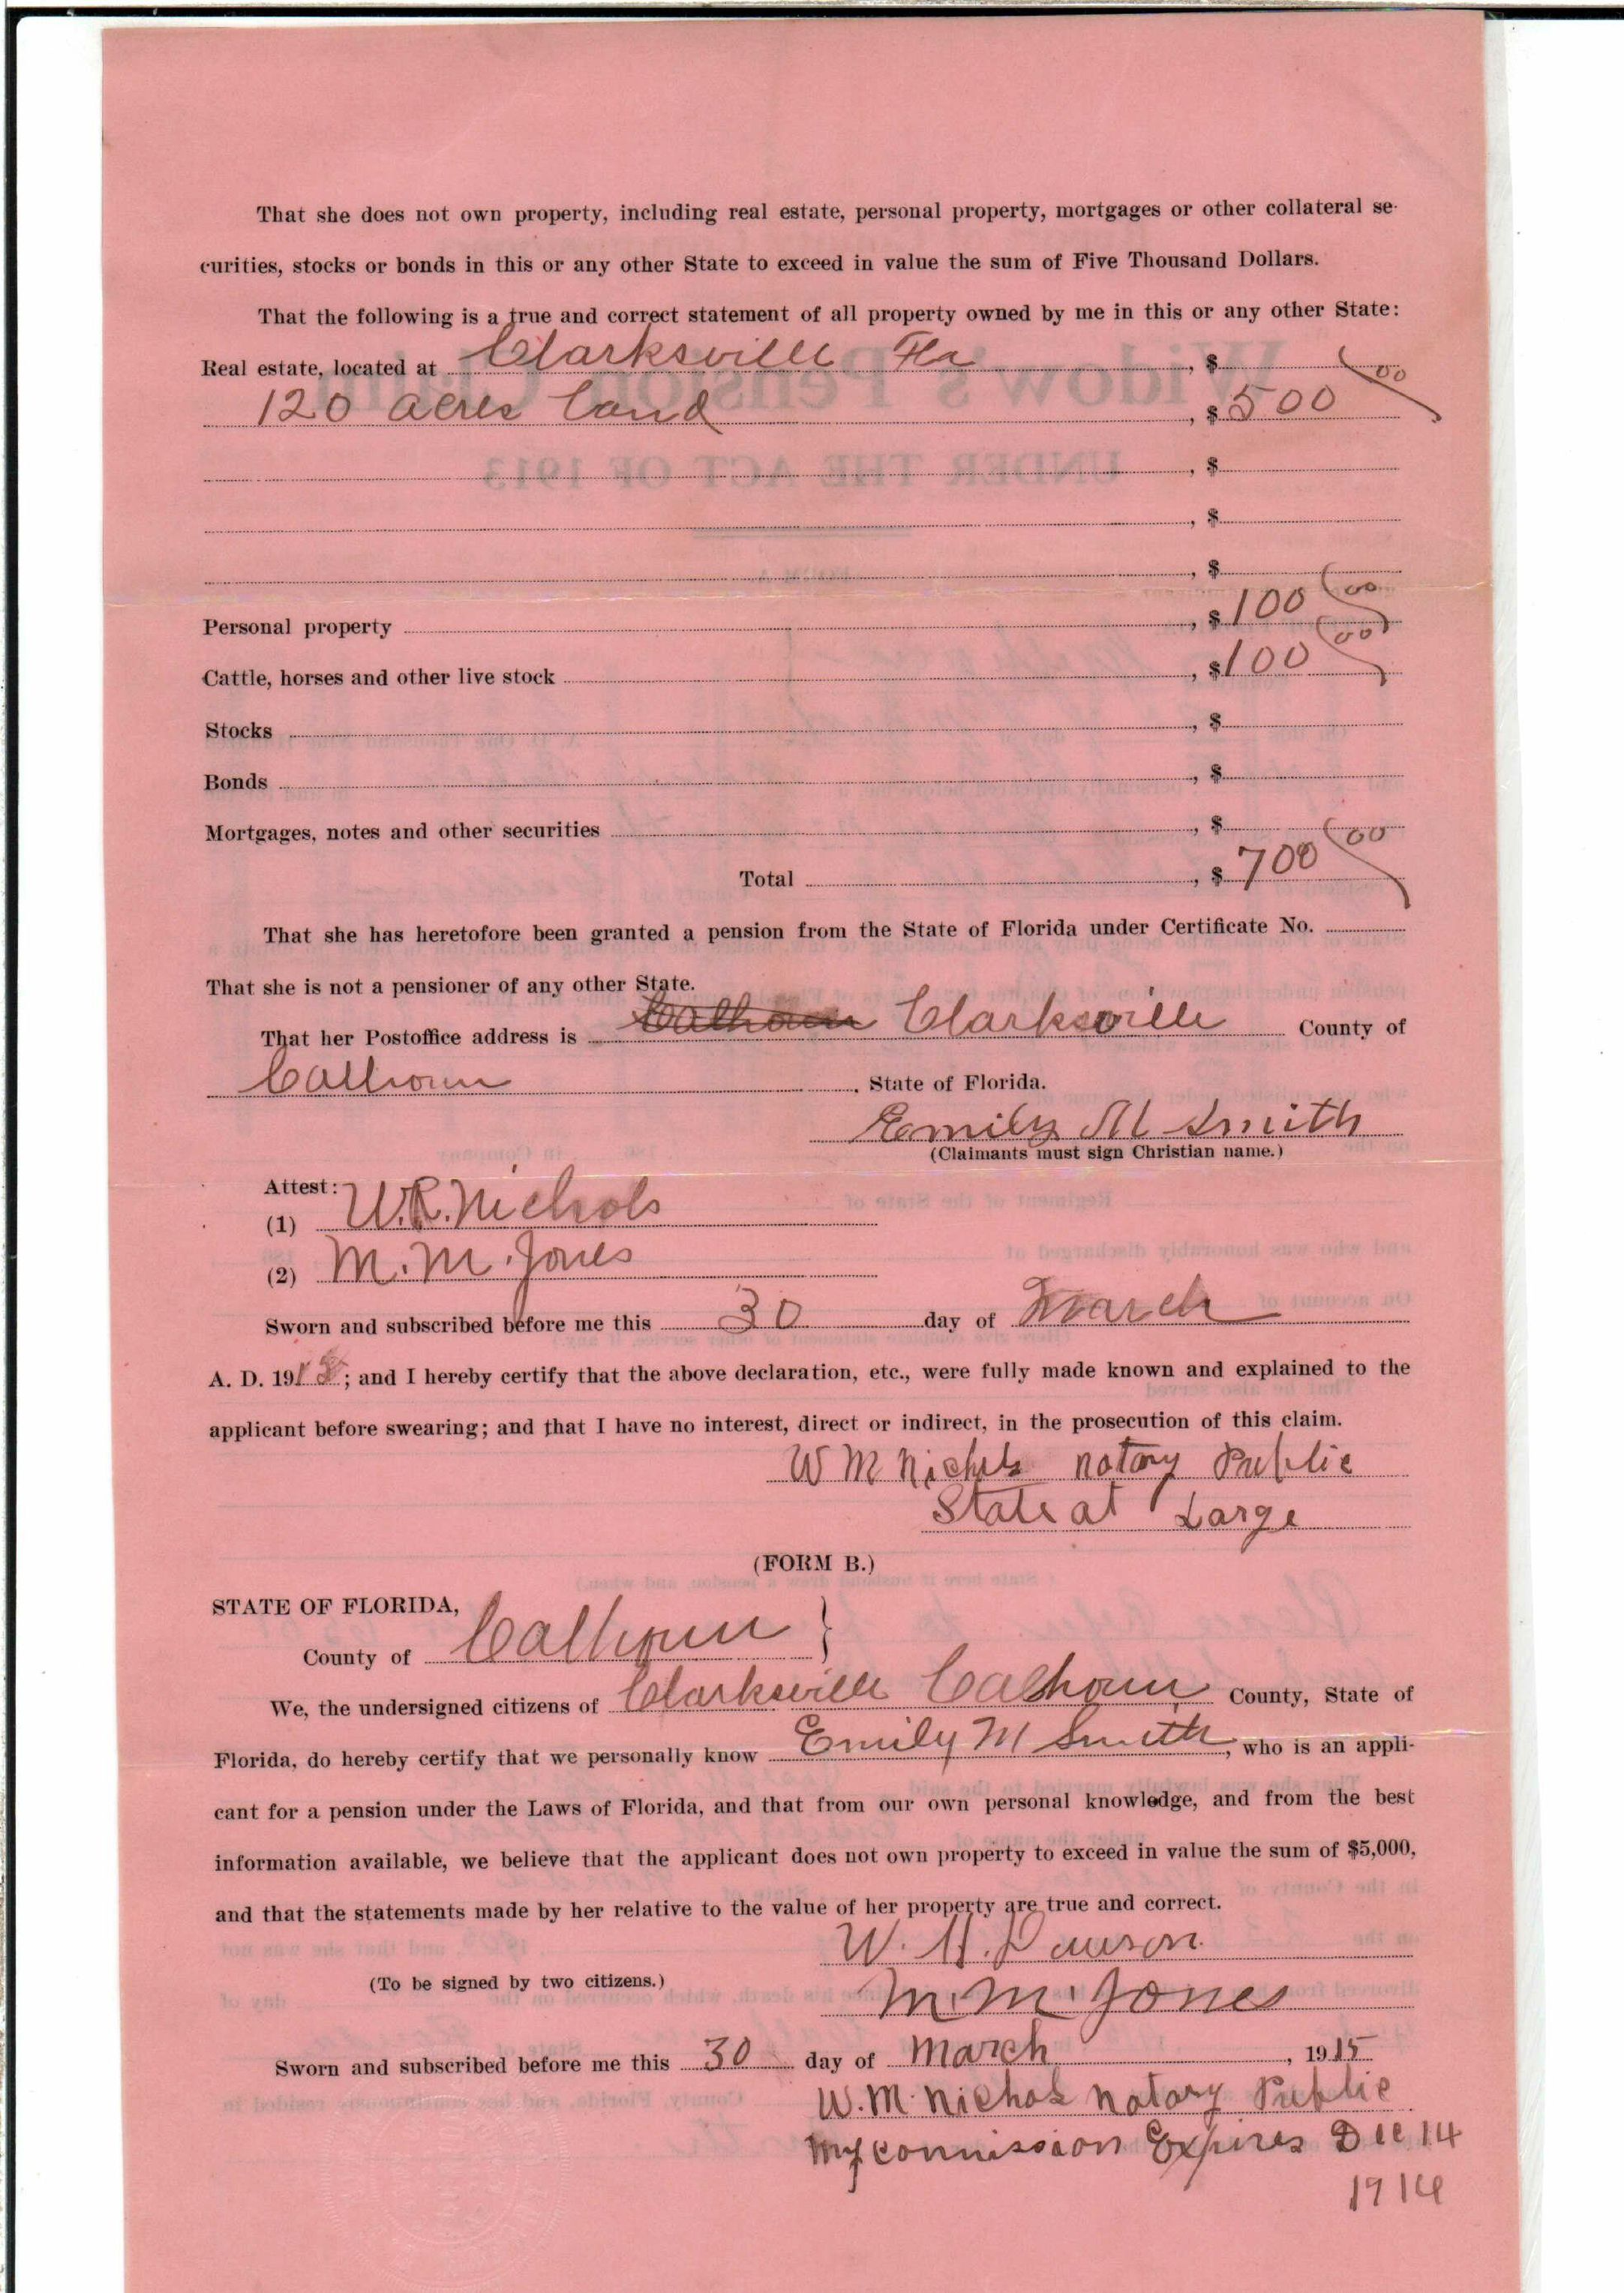 That she does not own property, including real estate, personal property, mortgages or other collateral se-
curities, stocks or bonds in this or any other State to exceed in value the sum of Five Thousand Dollars.
That the following is a true and correct statement of all property owned by me in this or any other State:
Real estate, located at Clarksville Fla , $
120 acres land , $ 500 00
, $
, $
, $
Personal property , $ 100 00
Cattle, horses and other live stock , $ 100 00
Stocks , $
Bonds , $
Mortgages, notes and other securities , $
Total , $ 700 00
That she has heretofore been granted a pension from the State of Florida under Certificate No.
That she is not a pensioner of any other State.
That her Postoffice address is Calhoun Clarksville County of
Calhoun State of Florida.
Emily M Smith
(Claimants must sign Christian name.)
Attest:
(1) W.R. Nichols
(2) M. M. Jones
Sworn and subscribed before me this 30 day of March
A. D. 191 ; and I hereby certify that the above declaration, etc., were fully made known and explained to the
applicant before swearing; and that I have no interest, direct or indirect, in the prosecution of this claim.
W M Nichols Notary Public
State at Large
(FORM B.)
STATE OF FLORIDA,
County of Calhoun }
We, the undersigned citizens of Clarksville Calhoun County, State of
Florida, do hereby certify that we personally know Emily M Smith, who is an appli-
cant for a pension under the Laws of Florida, and that from our own personal knowledge, and from the best
information available, we believe that the applicant does not own property to exceed in value the sum of $5,000,
and that the statements made by her relative to the value of her property are true and correct.
W. H.
(To be signed by two citizens.)
M. M. Jones
Sworn and subscribed before me this 30 day of March , 1915
W. M. Nichols Notary Public
My commission Expires Dec 14